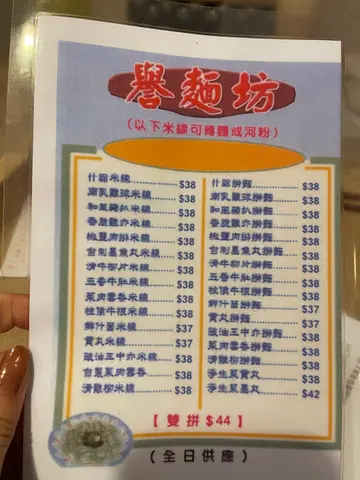 譽麵坊
(以下米線可轉麵或河粉)
什錦米線 $38
南乳雞球米線 $38
和風豬扒米線 $38
香脆雞亦米線 $38
椒鹽肉排米線 $38
自制墨魚丸米線 $38
清牛柳片米線 $38
五香牛肚米線 $38
菜肉雲吞米線 $38
柱侯牛根米線 $38
鮮什菌米線 $37
貢丸米線 $37
豉油王中亦米線 $38
自意菜肉雲吞 $38
滑雞柳米線 $38
什錦撈麵 $38
南乳雞球撈麵 $38
和風豬扒撈麵 $38
香脆雞亦撈麵 $38
椒鹽肉排撈麵 $38
自制墨魚丸撈麵 $38
清牛柳片撈麵 $38
五香牛肚撈麵 $38
菜肉雲吞撈麵 $38
柱侯牛根撈麵 $38
鮮什菌撈麵 $37
貢丸撈麵 $37
豉油王中亦撈麵 $38
滑雞柳撈麵 $38
淨生菜貢丸 $38
淨生菜墨丸 $42
【雙拼$44】
(全日供應)